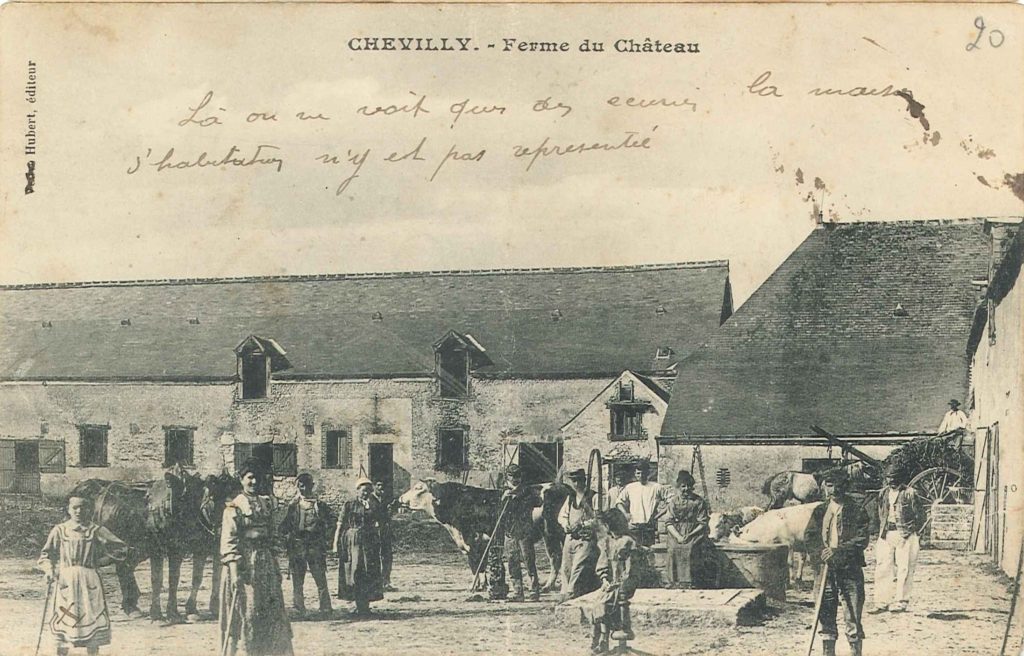 CHEVILLY. - Ferme du Château
20
Hubert, éditeur
Là on ne voit que des ecuries la maison
d'habitation n'y est pas representée